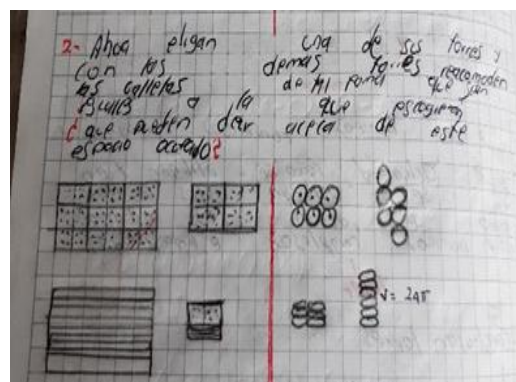 2.- Ahora eligan una de sus torres y
con las demas torres reacomoden
las galletas de tal forma que sean
iguales a la que escogieron
¿que pueden decir acerca de este
espacio ocupado?
V= 24π